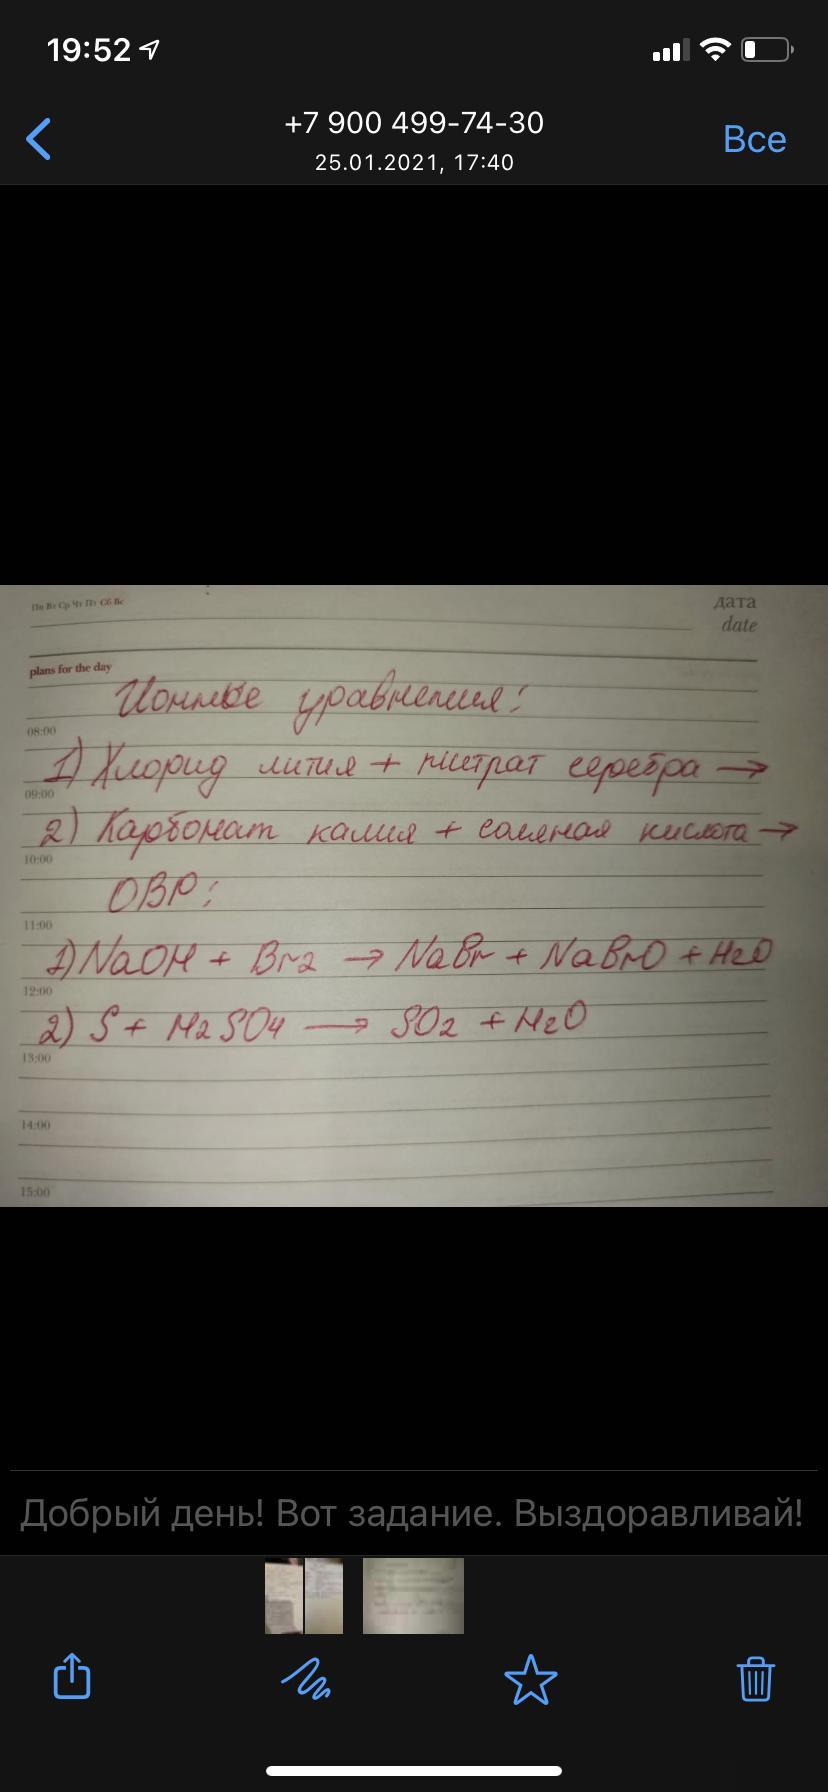 19:52
+7 900 499-74-30
25.01.2021, 17:40
Все
Пн Вт Ср Чт Пт Сб Вс
дата
date
plans for the day
Ионные уравнения:
08:00
1) Хлорид лития + нитрат серебра →
09:00
2) Карбонат калия + соляная кислота →
10:00
ОВР:
11:00
1) NaOH + Br2 → NaBr + NaBrO + H2O
12:00
2) S + H2SO4 → SO2 + H2O
13:00
14:00
15:00
Добрый день! Вот задание. Выздоравливай!